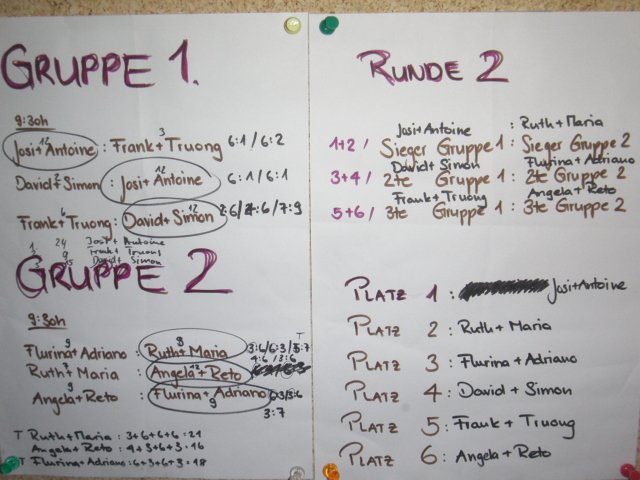 GRUPPE 1.
9:30h
Josi+Antoine : Frank+Truong 6:1 / 6:2
12 3
David+Simon : Josi+Antoine 6:1 / 6:1
2 12
Frank+Truong : David+Simon 6/ :6 / 7:9
6 12
1 24 Josi + Antoine
2 9 Frank + Truong
3 David + Simon
GRUPPE 2
9:30h
Flurina+Adriano : Ruth+Maria 3:6/6:3/ :7
9 9
Ruth+Maria : Angela+Reto 4:6 / 3:6
7
Angela+Reto : Flurina+Adriano 3:6
9 9
3:7
T Ruth+Maria : 3+6+6+6=21
Angela+Reto : 4+3+6+3=16
T Flurina+Adriano : 6+3+6+3=18
RUNDE 2
Josi+Antoine : Ruth+Maria
1+2 / Sieger Gruppe 1 : Sieger Gruppe 2
David+Simon Flurina+Adriano
3+4 / 2te Gruppe 1 : 2te Gruppe 2
Frank+Truong Angela+Reto
5+6 / 3te Gruppe 1 : 3te Gruppe 2
PLATZ 1 : Josi+Antoine
PLATZ 2 : Ruth+Maria
PLATZ 3 : Flurina+Adriano
PLATZ 4 : David+Simon
PLATZ 5 : Frank+Truong
PLATZ 6 : Angela+Reto